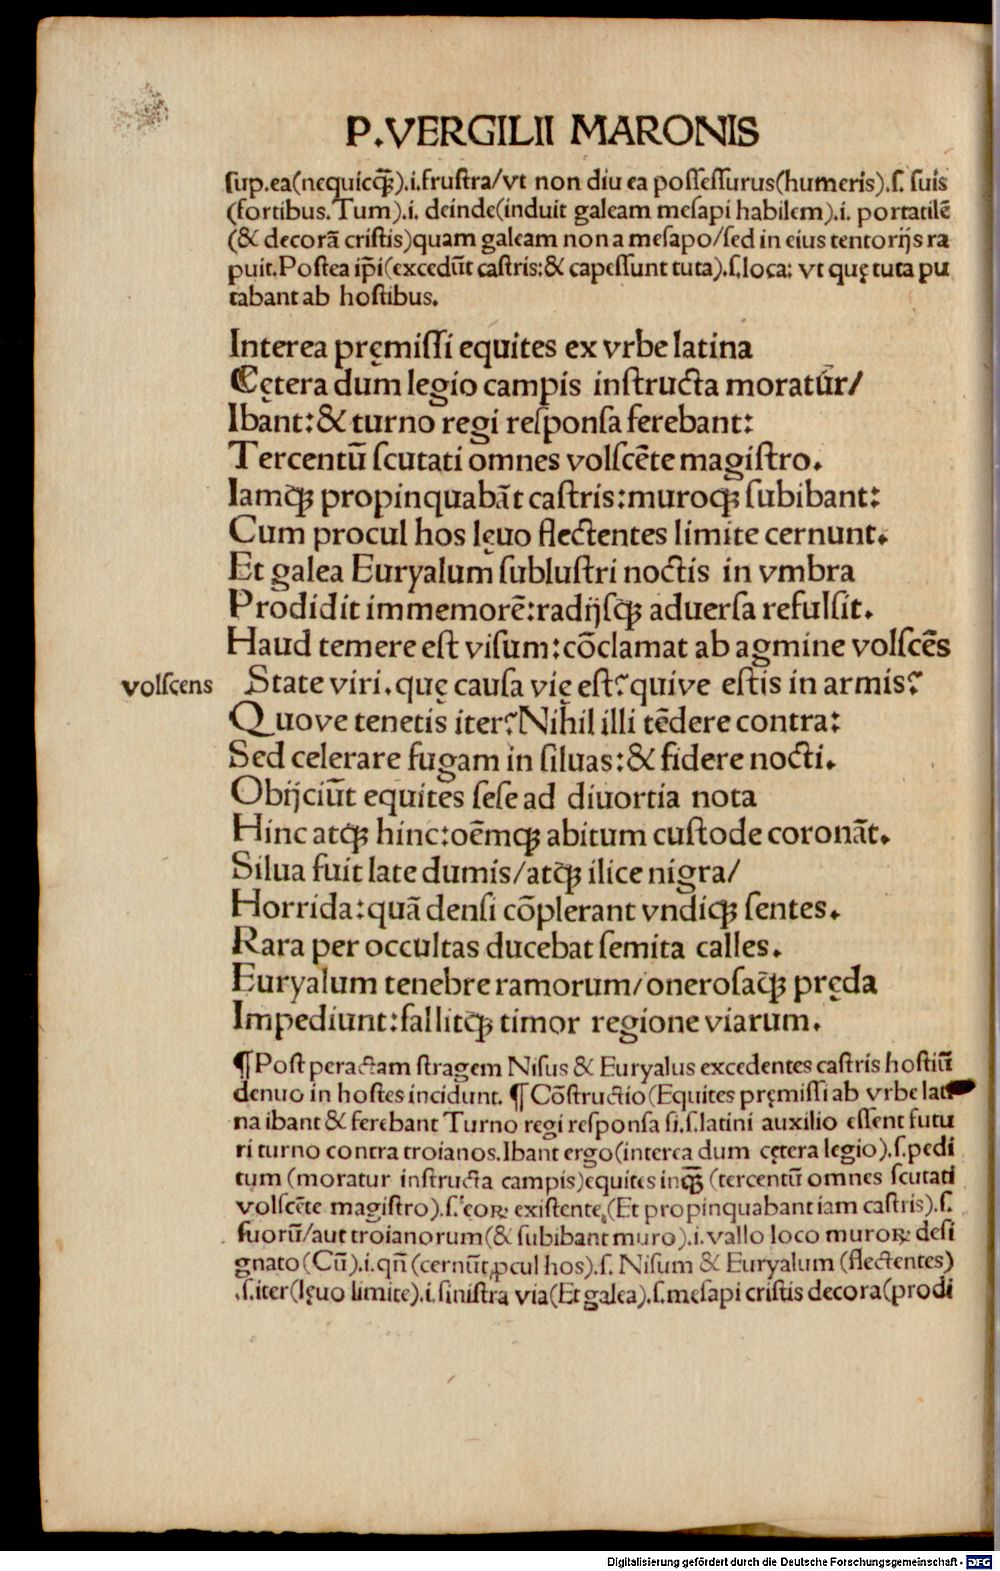 P.VERGILII MARONIS
sup.ea(nequicꝗ̃).i.frustra/vt non diu ea possessurus(humeris).s. suis
(fortibus.Tum).i. deinde(induit galeam mesapi habilem).i. portatilē
(& decorā cristis)quam galeam non a mesapo/sed in eius tentorijs ra
puit.Postea ip̄i(excedūt castris:& capessunt tuta).s.loca: vt quę tuta pu
tabant ab hostibus.
Interea pręmissi equites ex vrbe latina
Cętera dum legio campis instructa moratur̄/
Ibant:& turno regi responsa ferebant:
Tercentū scutati omnes volscēte magistro.
Iamqꝫ propinquabāt castris:muroqꝫ subibant:
Cum procul hos lęuo flectentes limite cernunt.
Et galea Euryalum sublustri noctis in vmbra
Prodidit immemorē:radijsqꝫ aduersa refulsit.
Haud temere est visum:cōclamat ab agmine volscēs
volscens State viri.quę causa vię est?quive estis in armis?
Quove tenetis iter?Nihil illi tēdere contra:
Sed celerare fugam in siluas:& fidere nocti.
Obijciūt equites sese ad diuortia nota
Hinc atqꝫ hinc:oēmqꝫ abitum custode coronāt.
Silua fuit late dumis/atqꝫ ilice nigra/
Horrida:quā densi cōplerant vndiqꝫ sentes.
Rara per occultas ducebat semita calles.
Euryalum tenebre ramorum/onerosaqꝫ pręda
Impediunt:fallitqꝫ timor regione viarum.
¶Post peractam stragem Nisus & Euryalus excedentes castris hostiū
denuo in hostes incidunt. ¶ Cōstructio(Equites pręmissi ab vrbe lati
na ibant & ferebant Turno regi responsa si.s.latini auxilio essent futu
ri turno contra troianos.Ibant ergo(interea dum cętera legio).s.pedi
tum (moratur instructa campis)equites inqꝫ̃ (tercentū omnes scutati
volscēte magistro).s.eoꝝ existente,(Et propinquabant iam castris).s.
suorū/aut troianorum(& subibant muro).i.vallo loco muroꝝ desi
gnato(Cū).i.qñ(cernūt ꝓcul hos).s. Nisum & Euryalum (flectentes)
.s.iter(lęuo limite).i.sinistra via(Et galea).s.mesapi cristis decora(prodi
Digitalisierung gefördert durch die Deutsche Forschungsgemeinschaft - DFG